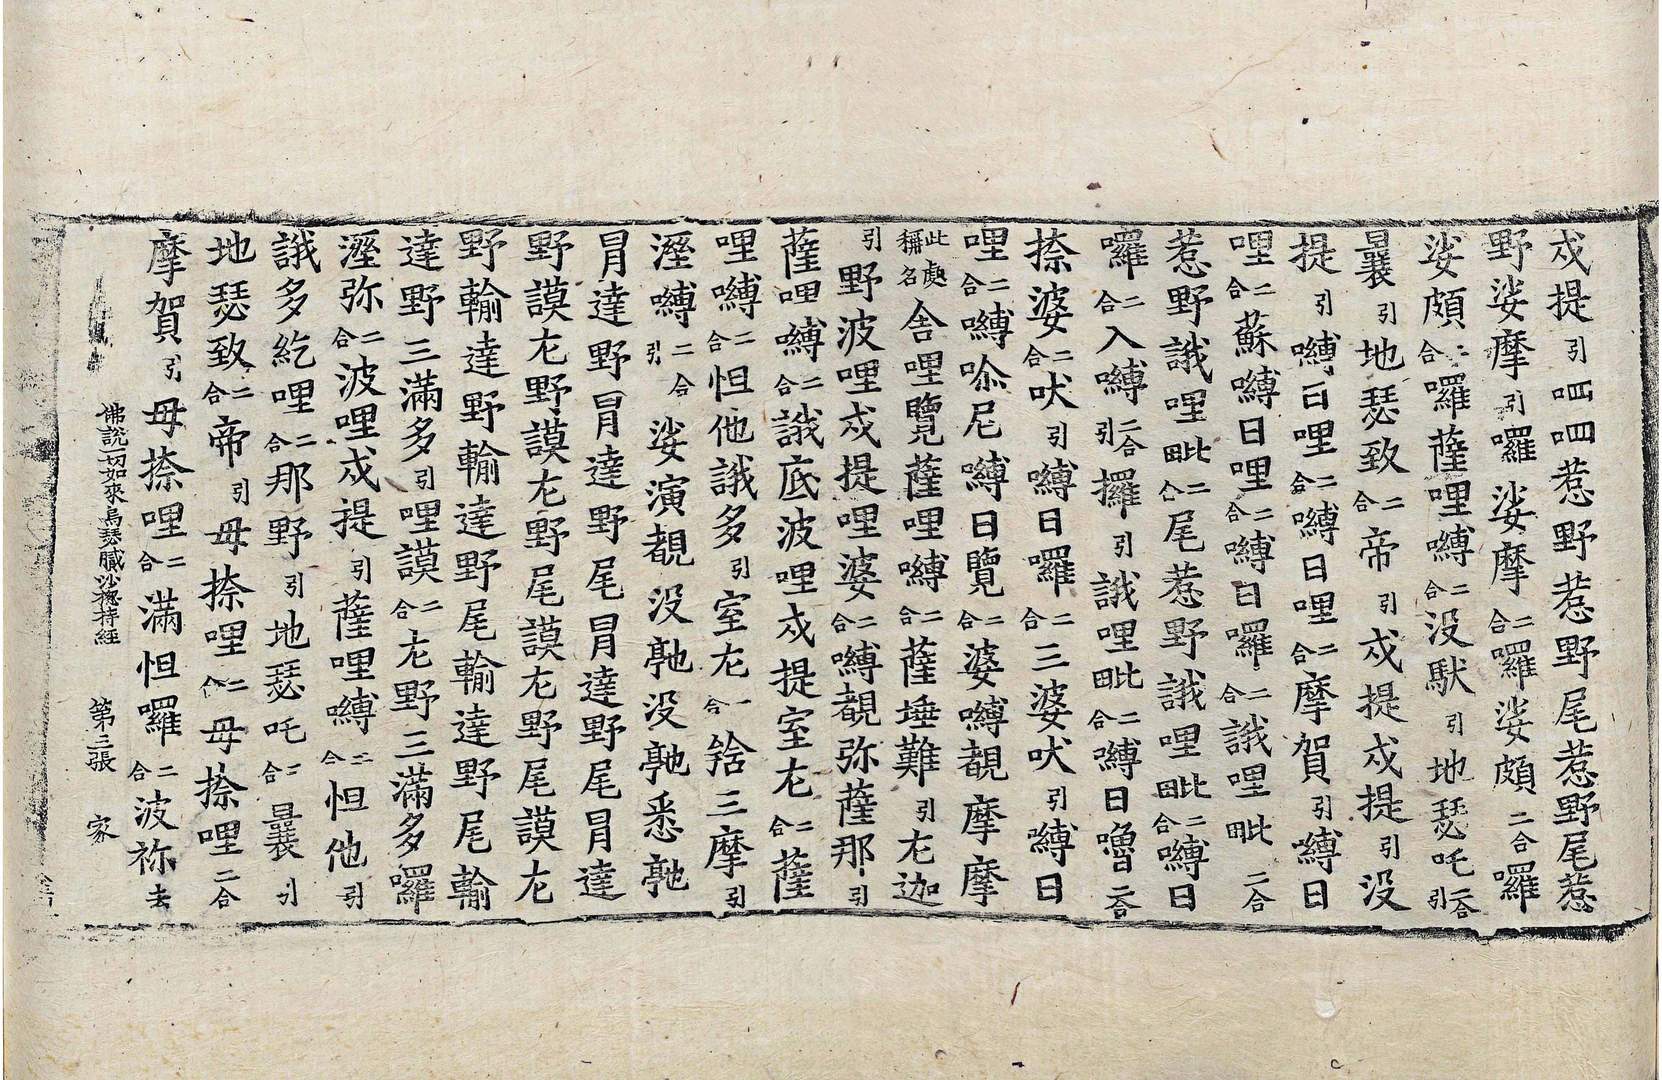 戍提引呬呬惹野惹野尾惹野尾惹
野娑摩引囉娑摩二合囉娑頗二合囉
娑頗二合囉薩哩嚩二合没馱引地瑟吒二合引
曩引地瑟致二合帝引戍提戍提引没
提引嚩曰哩二合嚩曰哩二合摩賀引嚩曰
哩二合蘇嚩曰哩二合嚩曰囉二合誐哩毗二合
惹野誐哩毗二合尾惹野誐哩毗二合嚩曰
囉二合入嚩二合引攞引誐哩毗二合嚩曰嚕二合
捺婆二合吠引嚩曰囉二合三婆吠引嚩曰
哩二合嚩喩尼嚩曰覽二合婆嚩覩摩摩
此處稱名舍哩覽薩哩嚩二合薩埵難引尢迦
引野波哩戍提哩婆二合嚩覩弥薩那引
薩哩嚩二合誐底波哩戍提室尢二合薩
哩嚩二合怛他誐多引室尢二合舍三摩引
溼嚩二合引娑演覩没䭾没䭾悉䭾
冐達野冐達野尾冐達野尾冐達
野謨尢野謨尢野尾謨尢野尾謨尢
野輸達野輸達野尾輸達野尾輸
達野三滿多引哩謨二合尢野三滿多囉
溼弥二合波哩戍提引薩哩嚩二合怛他引
誐多紇哩二合那野引地瑟吒二合曩引
地瑟致二合帝引毋捺哩二合毋捺哩二合
摩賀引毋捺哩二合滿怛囉二合波祢去
佛說一切如來烏瑟膩沙緫持經　第三張　家